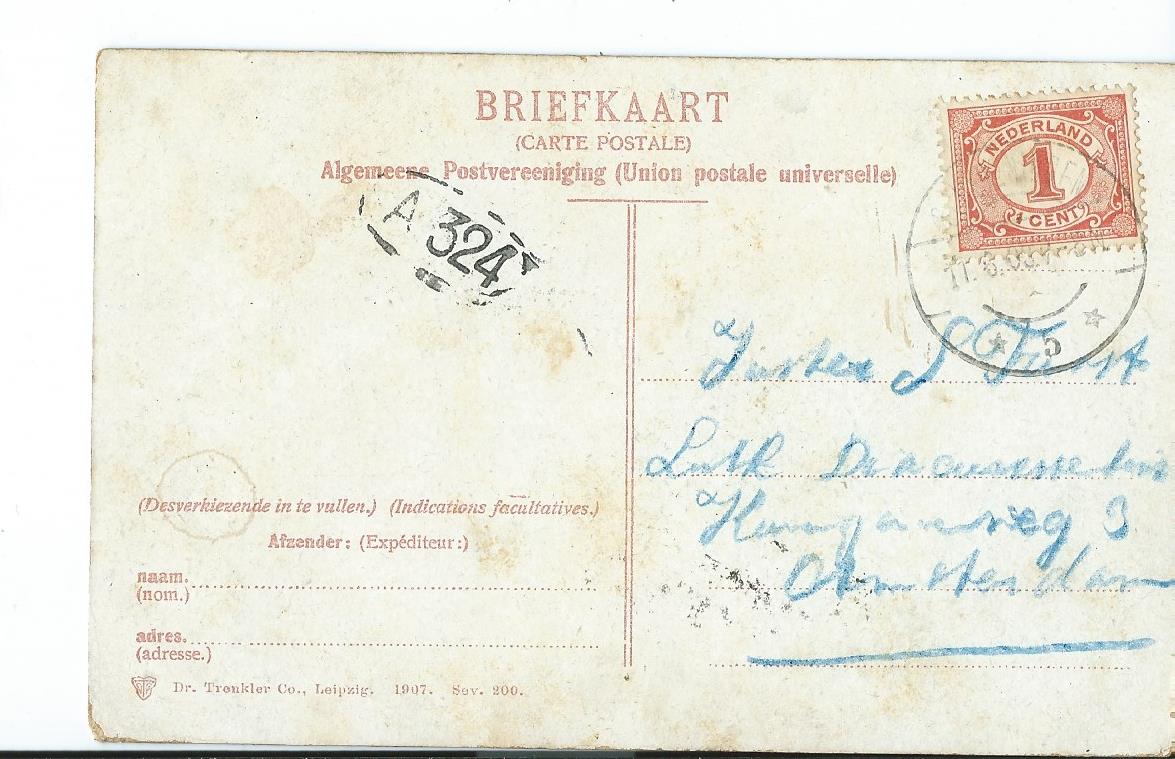 BRIEFKAART
(CARTE POSTALE)
Algemeene Postvereeniging (Union postale universelle)
NEDERLAND
1
1 CENT
A 324
11.6.
5
Zuster
Luth
3
Amsterdam
(Desverkiezende in te vullen.) (Indications facultatives.)
Afzender: (Expéditeur:)
naam.
(nom.)
adres.
(adresse.)
Dr. Trenkler Co., Leipzig. 1907. Sev. 200.